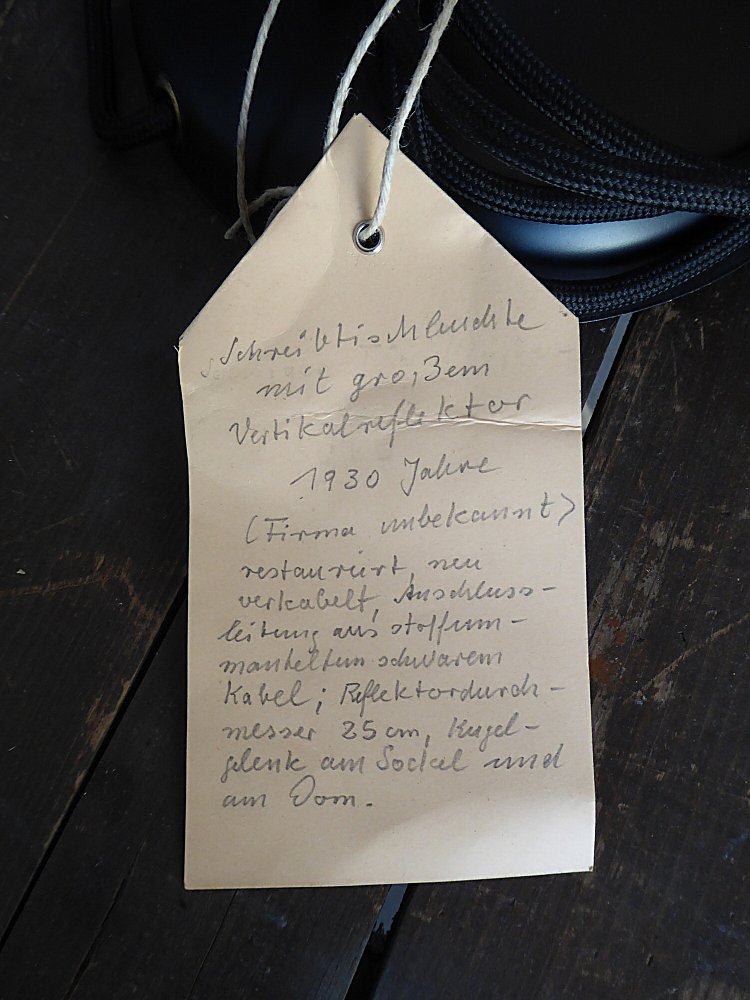 Schreibtischleuchte
mit großem
Vertikalreflektor
1930 Jahre
(Firma unbekannt)
restauriert, neu
verkabelt, Anschluss-
leitung aus stoffum-
manteltem schwarem
Kabel; Reflektordurch-
messer 25 cm, Kugel-
gelenk am Sockel und
am Dom.